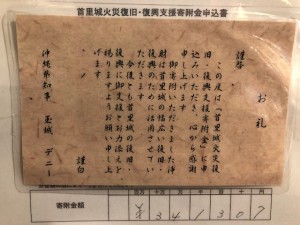 首里城火災復旧・復興支援寄附金申込書
お礼
謹啓
この度は「首里城火災復
旧・復興支援寄附金」に申
込みいただき、心から感謝
申し上げます。
御寄附いただきました浄
財は首里城の幅広い復旧・
復興のために活用させてい
ただきます。
今後とも首里城の復旧・
復興に御支援とお力添えを
賜りますようお願い申し上
げます。
謹白
沖縄県知事 玉城 デニー
寄附金額
百 十 万 千 百 十 円
¥ 3 4 1 3 0 7